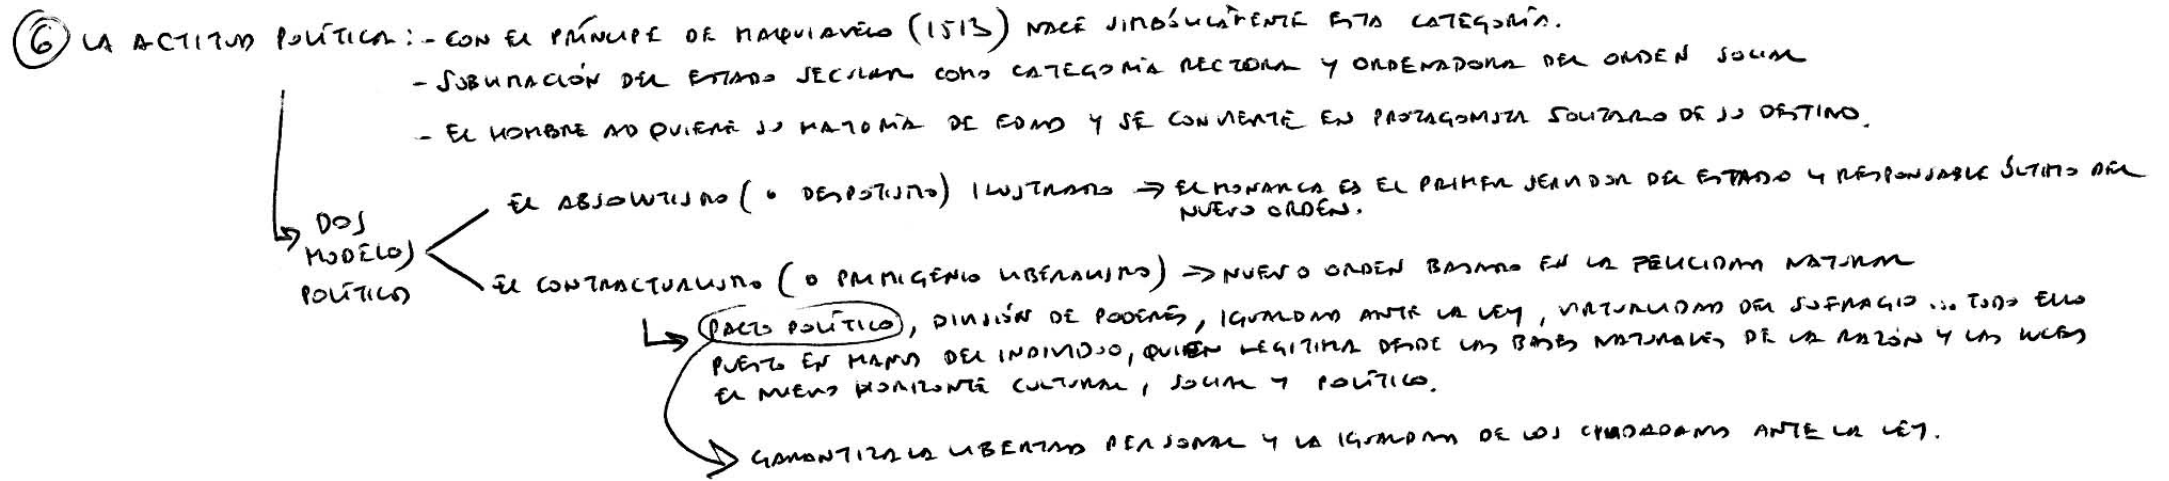 6 LA ACTITUD POLÍTICA: - CON EL PRÍNCIPE DE MAQUIAVELO (1513) NACE SIMBÓLICAMENTE ESTA CATEGORÍA.
- SUBLIMACIÓN DEL ESTADO SECULAR COMO CATEGORÍA RECTORA Y ORDENADORA DEL ORDEN SOCIAL
- EL HOMBRE ADQUIERE SU MAYORÍA DE EDAD Y SE CONVIERTE EN PROTAGONISTA SOLITARIO DE SU DESTINO.
DOS
MODELOS
POLÍTICOS
EL ABSOLUTISMO (O DESPOTISMO) ILUSTRADO → EL MONARCA ES EL PRIMER SERVIDOR DEL ESTADO Y RESPONSABLE ÚLTIMO DEL
NUEVO ORDEN.
EL CONTRACTUALISMO (O PRIMIGENIO LIBERALISMO) → NUEVO ORDEN BASADO EN LA FELICIDAD NATURAL
PACTO POLÍTICO, DIVISIÓN DE PODERES, IGUALDAD ANTE LA LEY, VIRTUALIDAD DEL SUFRAGIO... TODO ELLO
PUESTO EN MANOS DEL INDIVIDUO, QUIEN LEGITIMA DESDE LAS BASES NATURALES DE LA RAZÓN Y LAS LUCES
EL NUEVO HORIZONTE CULTURAL, SOCIAL Y POLÍTICO.
GARANTIZA LA LIBERTAD PERSONAL Y LA IGUALDAD DE LOS CIUDADANOS ANTE LA LEY.